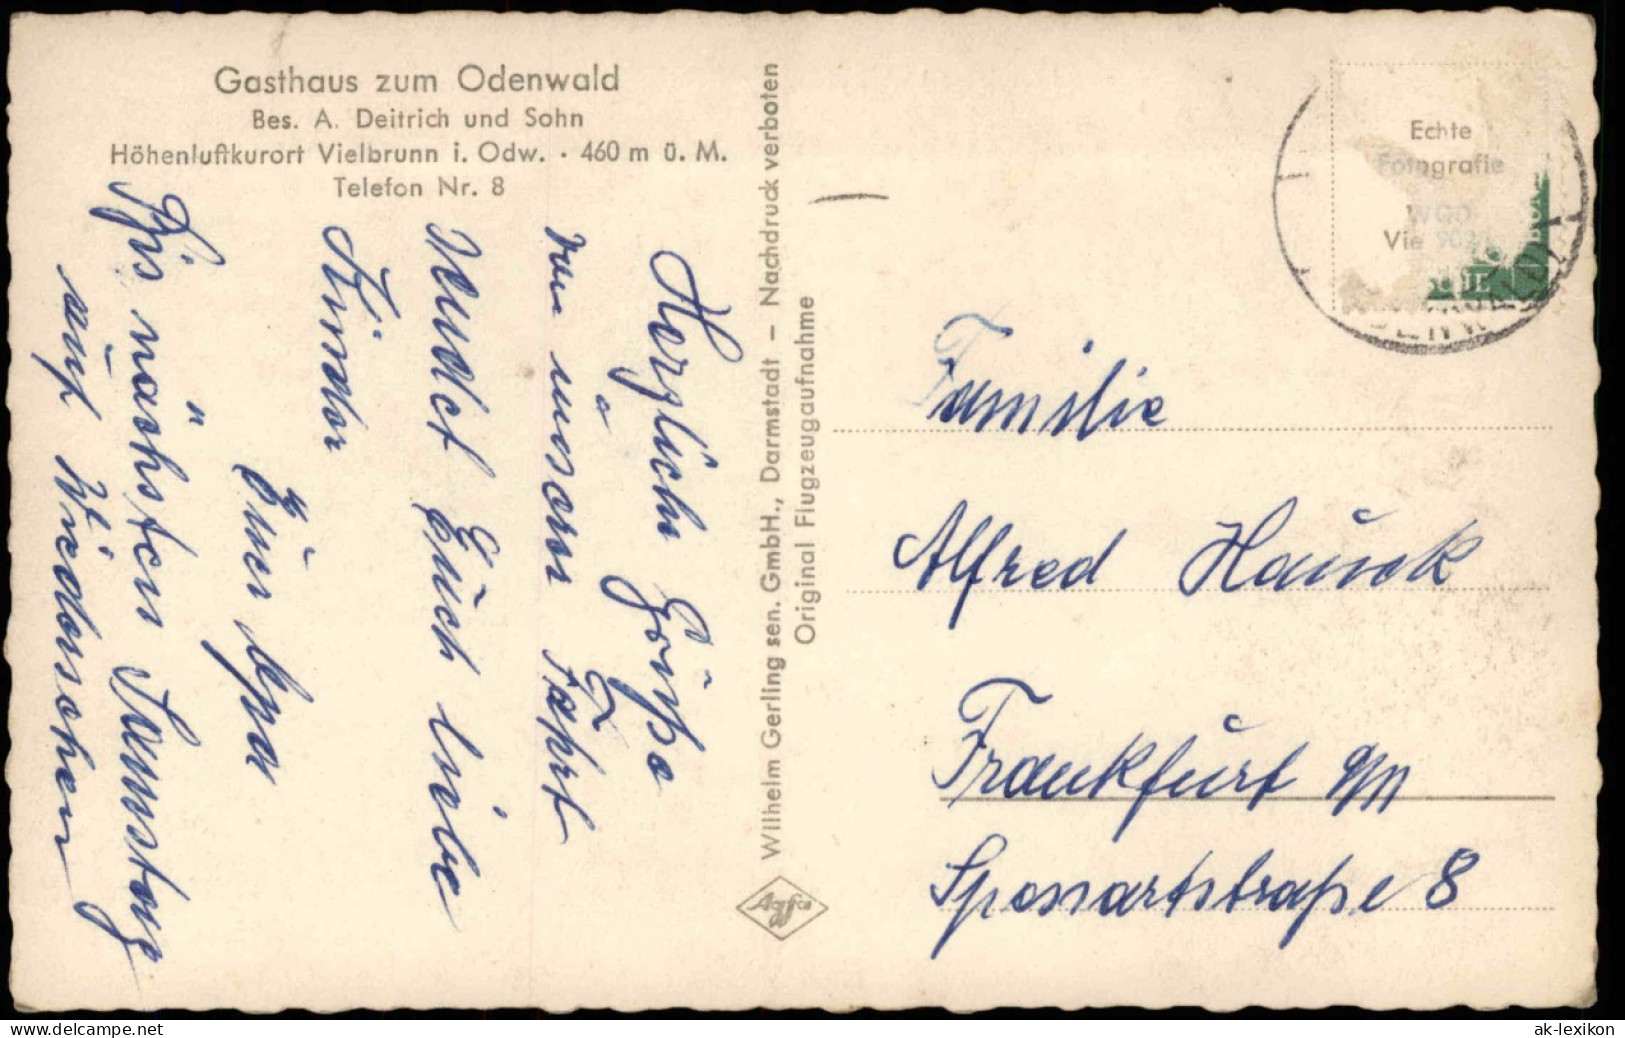 Gasthaus zum Odenwald
Bes. A. Deitrich und Sohn
Höhenluftkurort Vielbrunn i. Odw. · 460 m ü. M.
Telefon Nr. 8
Herzliche Grüße
von unserer Fahrt
sendet Euch liebe
Kinder
Euer Opa
Bis nächsten Samstag
auf Wiedersehen
Wilhelm Gerling sen. GmbH., Darmstadt – Nachdruck verboten
Original Flugzeugaufnahme
Agfa
Echte
Fotografie
WGD
Vie
ODENWALD
Familie
Alfred Hauck
Frankfurt a/M
Spessartstraße 8
www.delcampe.net
ak-lexikon